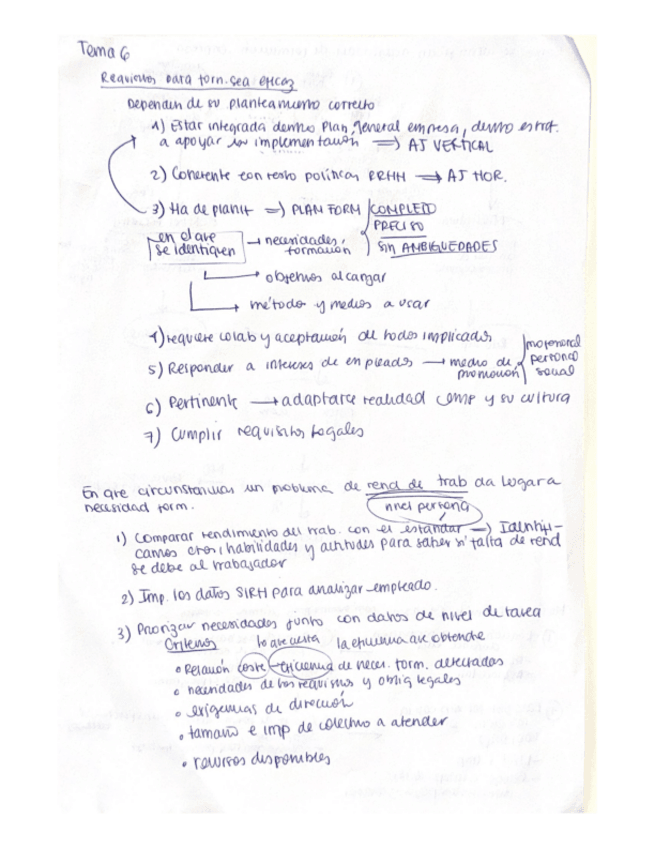 Tema 6
Requisitos para form. sea eficaz
Dependen de su planteamiento correcto
1) Estar integrada dentro Plan general empresa, dentro estrat.
a apoyar su implementación => AJ VERTICAL
2) Coherente con resto políticas RRHH → AJ HOR.
3) Ha de planif => PLAN FORM COMPLETO
PRECISO
SIN AMBIGUEDADES
en el que se identifiquen → necesidades formación
→ objetivos alcanzar
→ método y medios a usar
4) requiere colab y aceptación de todos implicados
5) Responder a intereses de empleados → medio de promoción profesional personal social
6) Pertinente → adaptarse realidad emp y su cultura
7) Cumplir requisitos legales
En que circunstancias un problema de rend de trab da lugar a
necesidad form. nivel persona
1) Comparar rendimiento del trab. con el estándar => Identifi-
camos habilidades y actitudes para saber si falta de rend
se debe al trabajador
2) Imp. los datos SIRH para analizar empleado.
3) Priorizar necesidades junto con datos de nivel de tarea
Criterios lo que cuesta la eficiencia que obtendre
• Relación coste-eficiencia de neces. form. detectadas
• necesidades de los requisitos y oblig legales
• exigencias de dirección
• tamaño e imp de colectivo a atender
• recursos disponibles